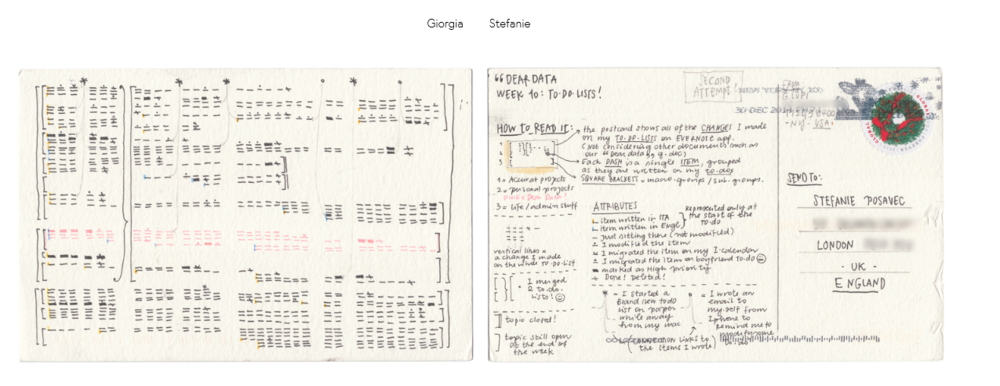 Giorgia Stefanie
DEAR DATA
WEEK 10: TO-DO-LISTS!
SECOND
ATTEMPT!
HOW TO READ IT:
the postcard shows all of the CHANGES I made
on my TO-DO-LISTS on EVERNOTE app.
(not considering other documents such as
our "Dear data" by g-doc)
Each DASH is a single ITEM, grouped
as they are written on my to-do's
SQUARE BRACKETS = macro-groups / sub-groups.
1 = Accurat projects
2 = personal projects
3 = life / admin stuff
vertical lines =
a change I made
on the whole TO-DO-LIST
I merged
2 to-do
lists!
topic closed!
topic still open
at the end of
the week
ATTRIBUTES
Represented only at
the start of the
to-do
item written in ITA
item written in Engl
just sitting there (not modified)
I modified the item
I migrated the item on my I-calendar
I migrated the item on boyfriend to-do
marked as High-priority
Done! Deleted!
= I started a
Brand new todo
list on purpose
while away
from my mac
= I wrote an
email to
my-self from
Iphone to
Remind me to
links to
the items I wrote
30 DEC
SEND TO:
STEFANIE POSAVEC
LONDON
- UK -
ENGLAND